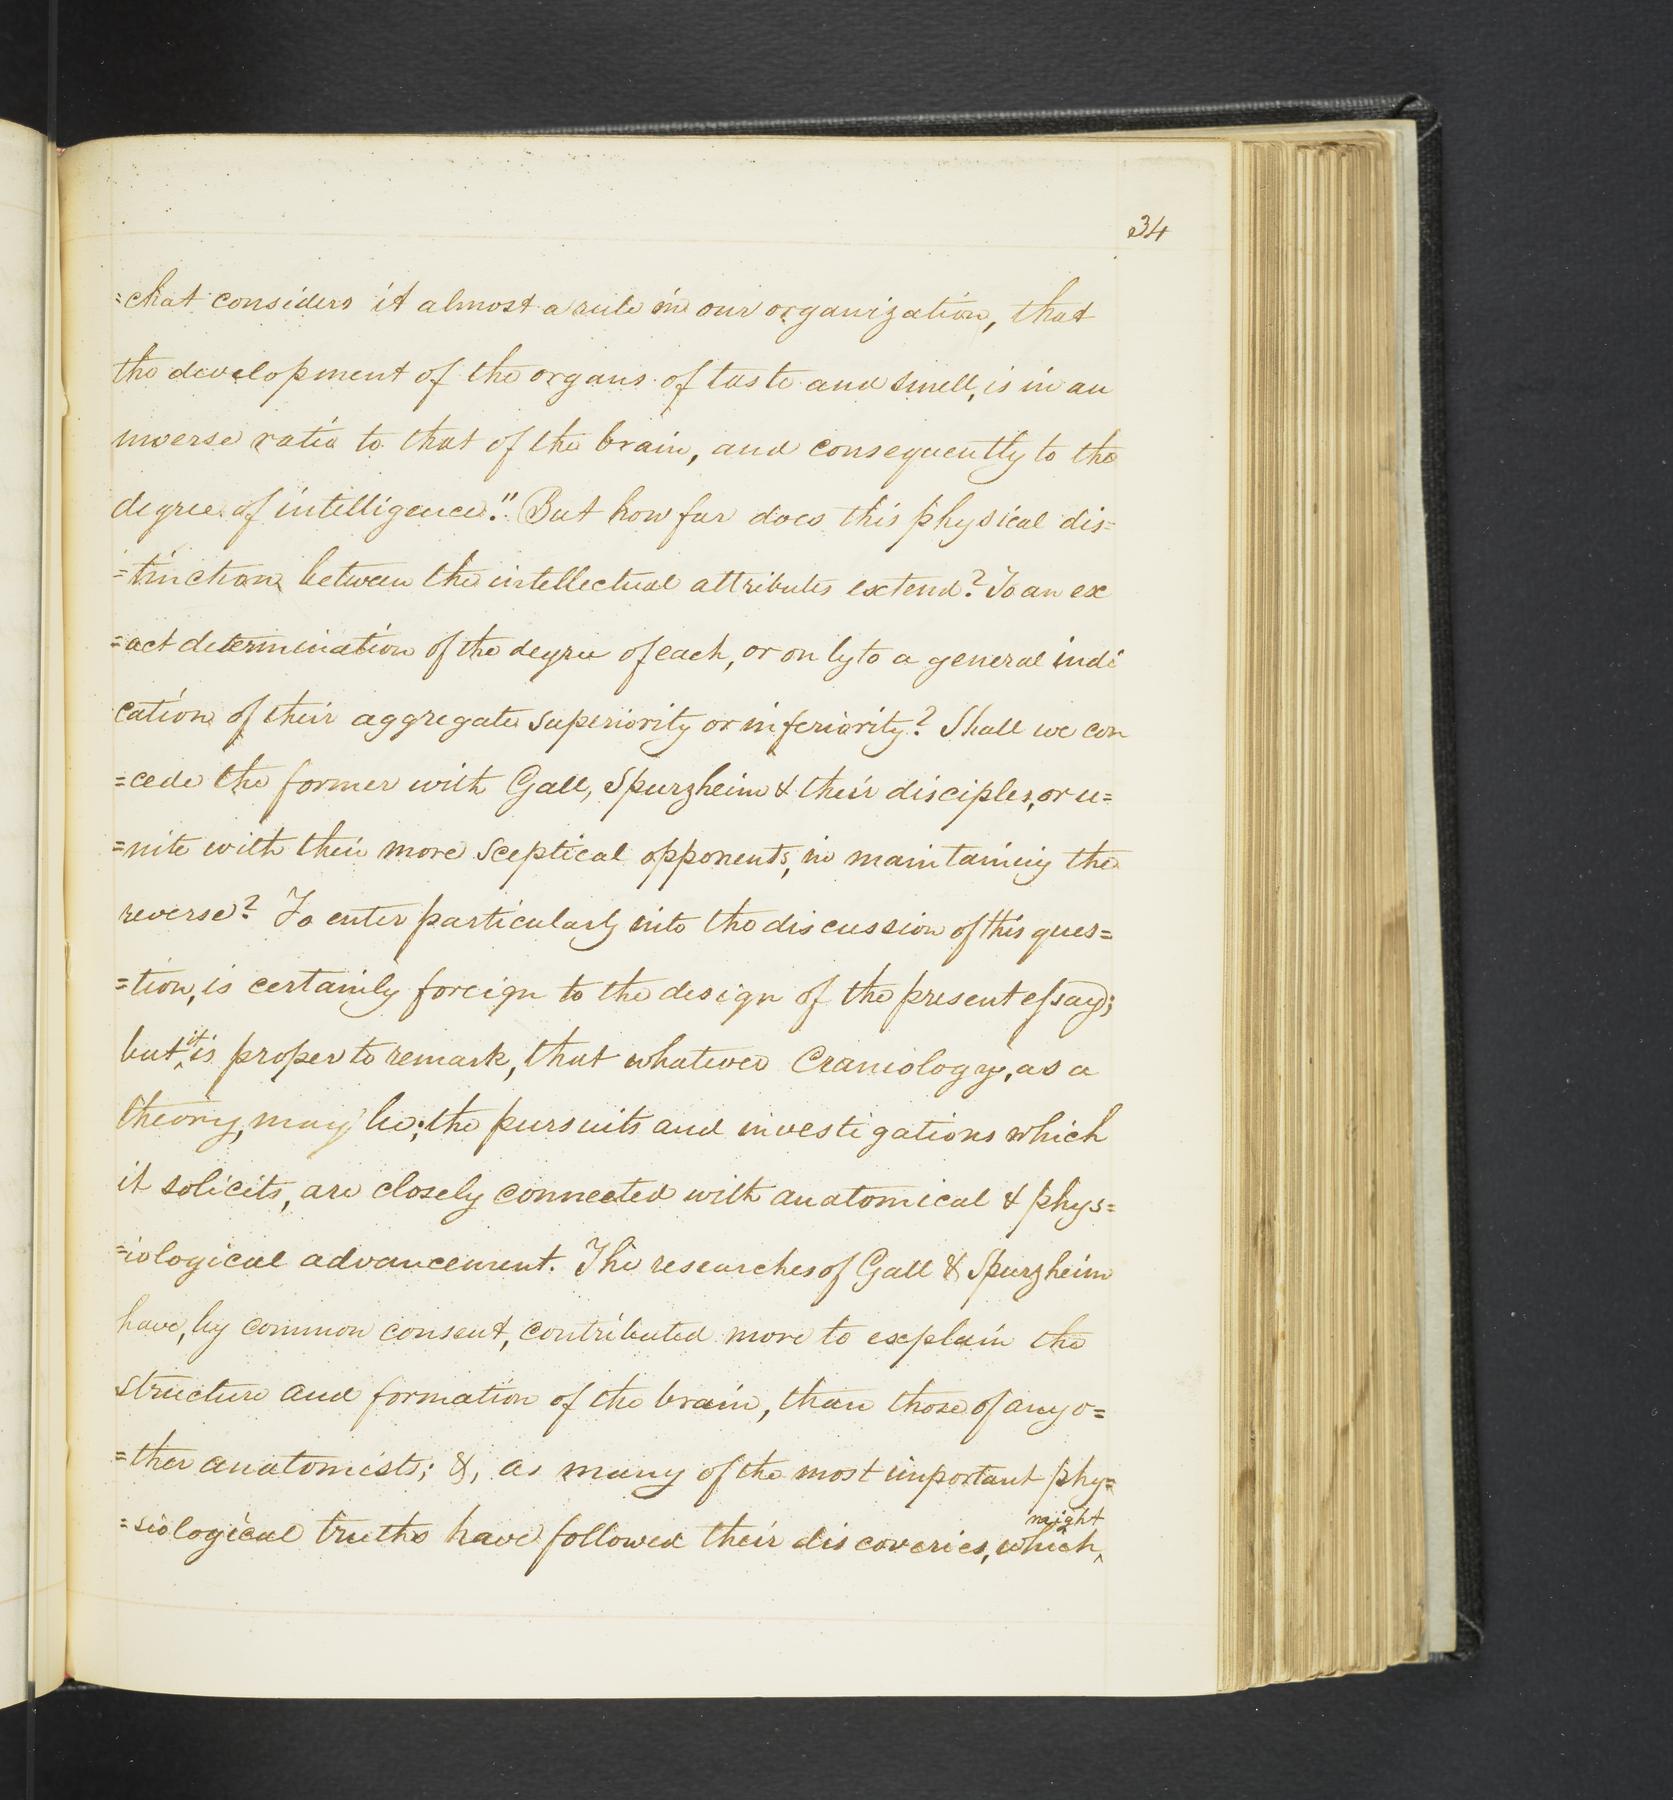 34
=chat considers it almost a rule in our organization, that
the development of the organs of taste and smell, is in an
inverse ratio to that of the brain, and consequently to the
degree of intelligence." But how far does this physical dis=
=tinction between the intellectual attributes extend? To an ex
=act determination of the degree of each, or only to a general indi
cation of their aggregate superiority or inferiority? Shall we con
=cede the former with Gall, Spurzheim & their disciples, or u=
=nite with their more sceptical opponents, in maintaining the
reverse? To enter particularly into the discussion of this ques=
=tion, is certainly foreign to the design of the present essay;
but ^it is proper to remark, that whatever Craniology, as a
theory, may be; the pursuits and investigations which
it solicits, are closely connected with anatomical & phys=
=iological advancement. The researches of Gall & Spurzheim
have, by common consent, contributed more to explain the
structure and formation of the brain, than those of any o=
=ther anatomists; &, as many of the most important phy=
=siological truths have followed their discoveries, which ^might